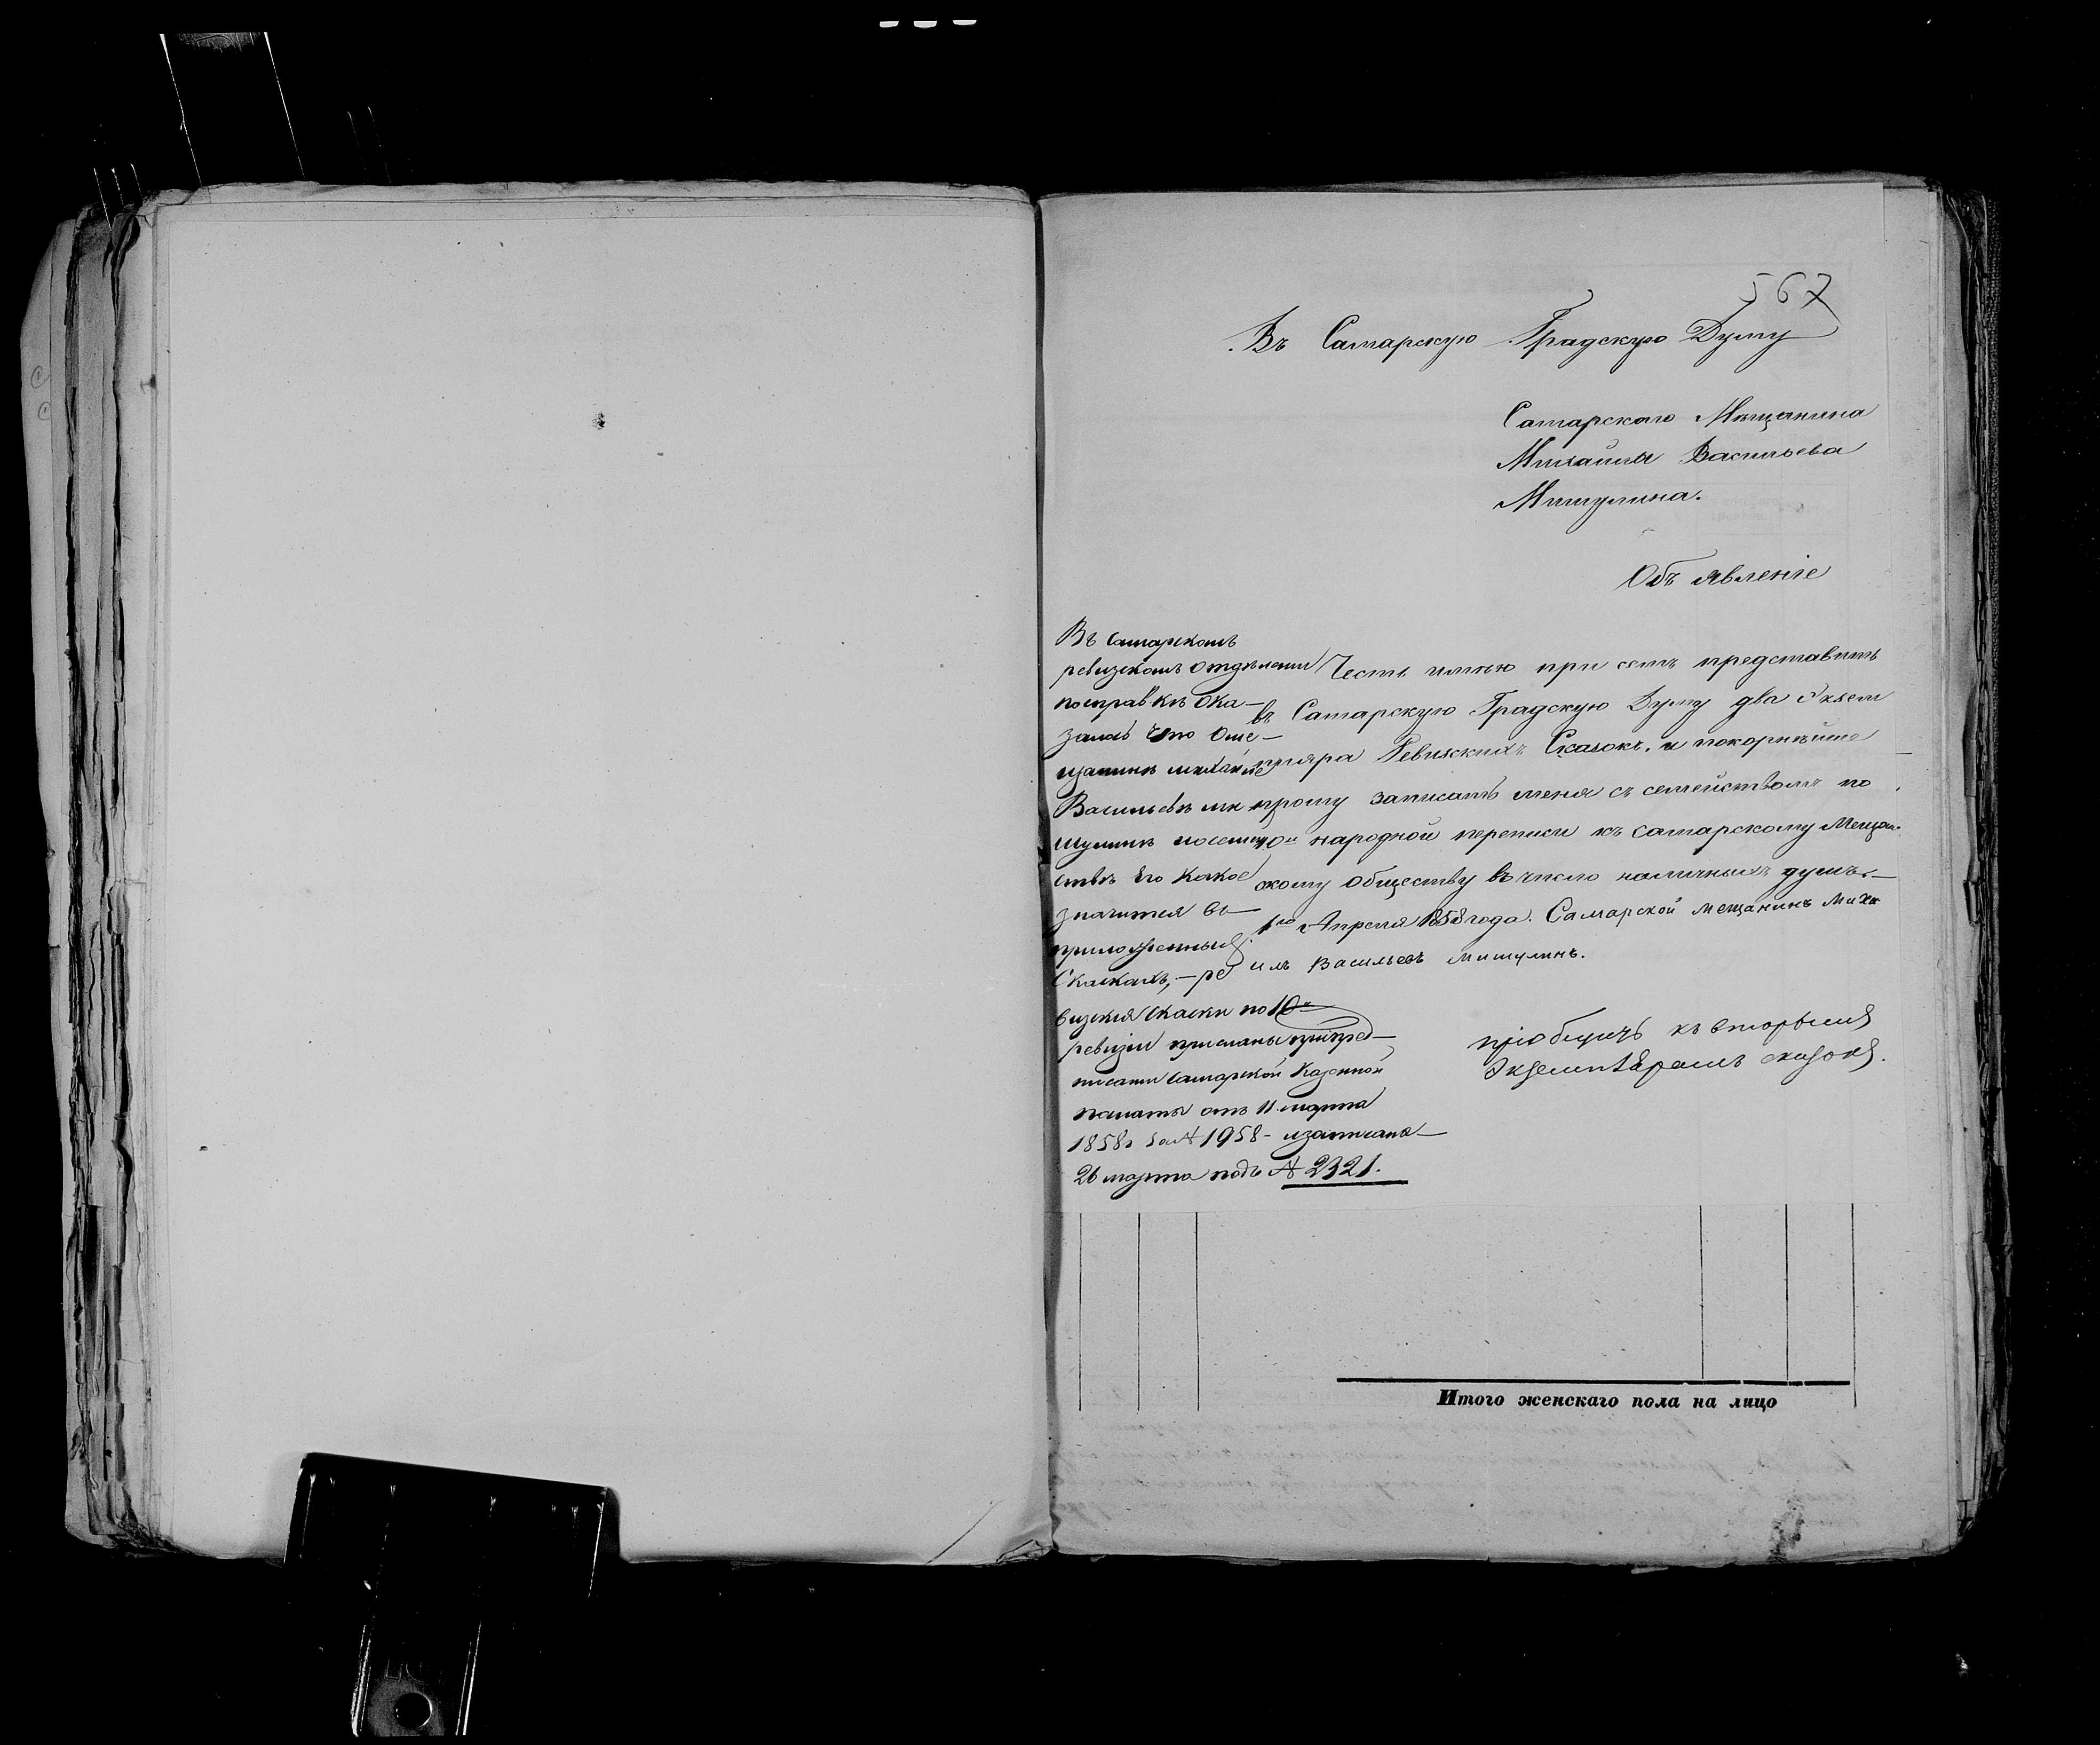 567
Въ Самарскую Градскую Думу
Самарского Мѣщанина
Михаила Васильева
Мишулина.
Объявленіе
Честь имѣю при семъ представить
въ Самарскую Градскую Думу два Экзем
пляра Ревизскихъ Сказокъ, и покорнѣйше
прошу записать меня съ семействомъ по
10й народной переписи къ самарскому Мещан-
скому Обществу въ число наличныхъ душъ.—
1го Апреля 1858 года. Самарской мещанинъ Миха
илъ Васильевъ Мишулинъ.
Въ Самарскомъ
ревизскомъ отдѣлении
посправкѣ Ока—
залось Что Оме—
щанинъ михаиле
Васильевѣ ми
шулинѣ
ствѣ Его Какое
значится въ
приложенныхъ
Скаскахъ,—ре
визкия Скаски по 10й
ревизии присланы припред—
писании Самарской Казенной
палаты отъ 11 марта
1858г за № 1958 - изаписана—
26 марта подъ № 2321.
пріобщить къ вторымъ
Экземплярамъ сказокъ.
Итого женскаго пола на лицо